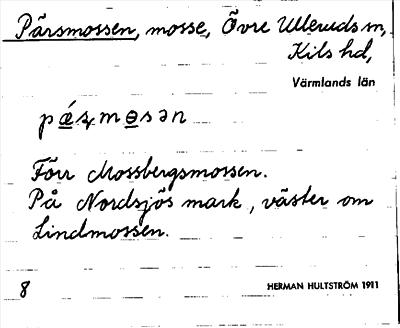 Pärsmossen, mosse, Övre Ulleruds sn,
Kils hd,
Värmlands län
Förr Mossbergsmossen.
På Nordsjös mark, väster om
Lindmossen.
8
HERMAN HULTSTRÖM 1911